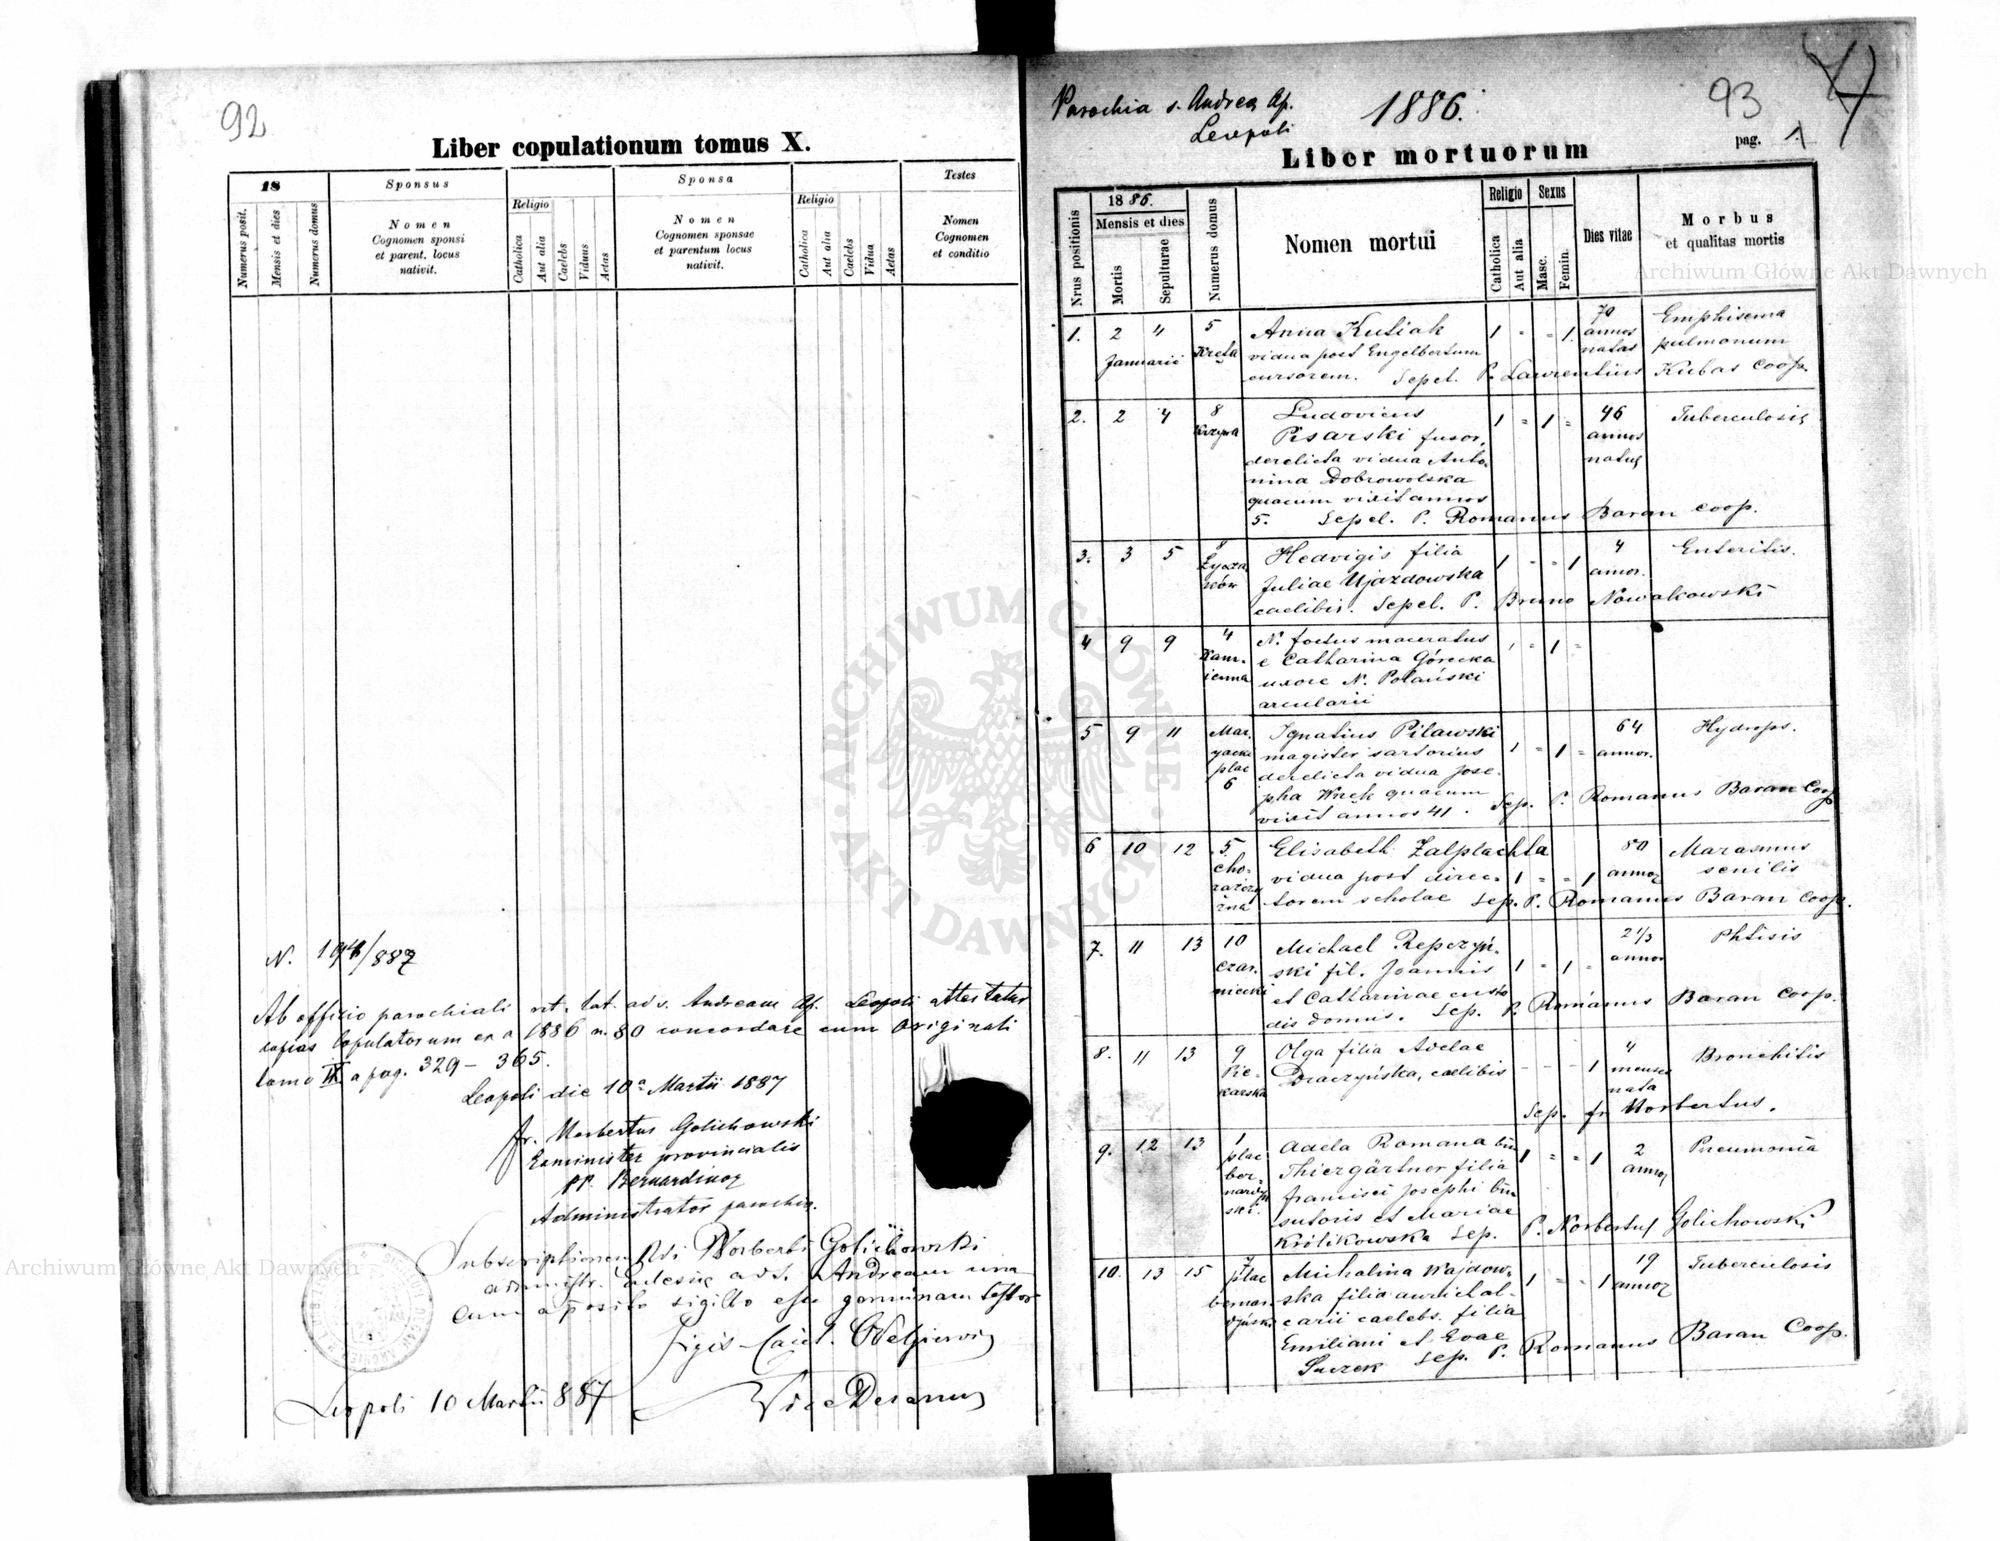 92
Liber copulationum tomus X.
18
Numerus posit.
Mensis et dies
Numerus domus
Sponsus
Nomen
Cognomen sponsi
et parent. locus
nativit.
Religio
Catholica
Aut alia
Caelebs
Viduus
Aetas
Sponsa
Nomen
Cognomen sponsae
et parentum locus
nativit.
Religio
Catholica
Aut alia
Caelebs
Vidua
Aetas
Testes
Nomen
Cognomen
et conditio
N. 194/887
Ab officio parochiali rit. lat. ad s. Andream Ap. Leopoli attestatur
copias Copulatorum ex a 1886 n. 80 concordare cum Originali
tomo IX a pag. 329 – 365.
Leopoli die 10a Martii 1887
fr. Norbertus Golichowski
Exminister provincialis
PP. Bernardinor
Administrator parochiae.
Subscriptionem Rdi Norberti Golichowski
administr. ad S. Andream una
cum apposito sigillo esse genuinam testor
Leopoli 10 Martii 887
Vice Decanus
Parochia s. Andreae Ap.
Leopoli
1886.
93
pag. 1
Liber mortuorum
Nrus positionis
1886.
Mensis et dies
Mortis
Sepulturae
Numerus domus
Nomen mortui
Religio
Catholica
Aut alia
Sexus
Masc.
Femin.
Dies vitae
Morbus
et qualitas mortis
1. 2 4 5 Anna Kusiak 1 - - 1. 70 Emphisema
Januarii Kręta vidua post Engelbertum annos pulmonum
natas
cursorem. Sepel. P. Laurentius Kubas Coop.
2. 2 4 8 Ludovicus 1 - 1 - 46 Tuberculosis
Krzywa Pisarski fusor, annos
derelicta vidua Anto- natus
nina Dobrowolska
quacum vixit annos
5. Sepel. P. Romanus Baran coop.
3. 3 5 8 Hedvigis filia 1 - - 1 4 Enteritis.
Łycza Juliae Ujazdowska annor.
ków caelibis. Sepel. P. Bruno Nowakowski
4 9 9 4 N. foetus maceratus 1 - 1 -
Kam- e Catharina Górecka
ienna uxore N. Polański
arcularii
5 9 11 Mar. Ignatius Pilawski 1 - 1 - 64 Hydrops.
yacki magister sartorius annor.
plac derelicta vidua Jose-
6 pha Wnęk quacum
vixit annos 41. Sep. P. Romanus Baran Coop
6 10 12 5. Elisabeth Zalplachta 80 Marasmus
Cho- vidua post direc- 1 - - 1 annor senilis
rąszczy torem scholae Sep. P. Romanus Baran Coop.
zna
7. 11 13 10 Michael Repczyń- 1 - 1 - 2 1/3 Phtisis
Czar- ski fil. Joannis annor
niecki et Catharinae custo
dis domus. Sep. P. Romanus Baran Coop.
8. 11 13 9 Olga filia Adelae - - - 1 4 Bronchitis
Pie- Draczyńska, caelibis menses
karska nata
Sep. fr Norbertus.
9. 12 13 1 Adela Romana bin 1 - - 1 2 Pneumonia
plac Thiergärtner filia annor
ber- Francisci Josephi bin
nardyń sutoris et Mariae
ski. Królikowska Sep. P. Norbertus Golichowski
10. 13 15 7 Michalina Wajdow- 1 - - 1 19 Tuberculosis
plac ska filia aurichal- annor
bernar- carii caelebs. filia
dyński Emiliani et Evae
Suczek Sep. P. Romanus Baran Coop.
Archiwum Główne Akt Dawnych
Archiwum Główne Akt Dawnych
ARCHIWUM GŁÓWNE
AKT DAWNYCH